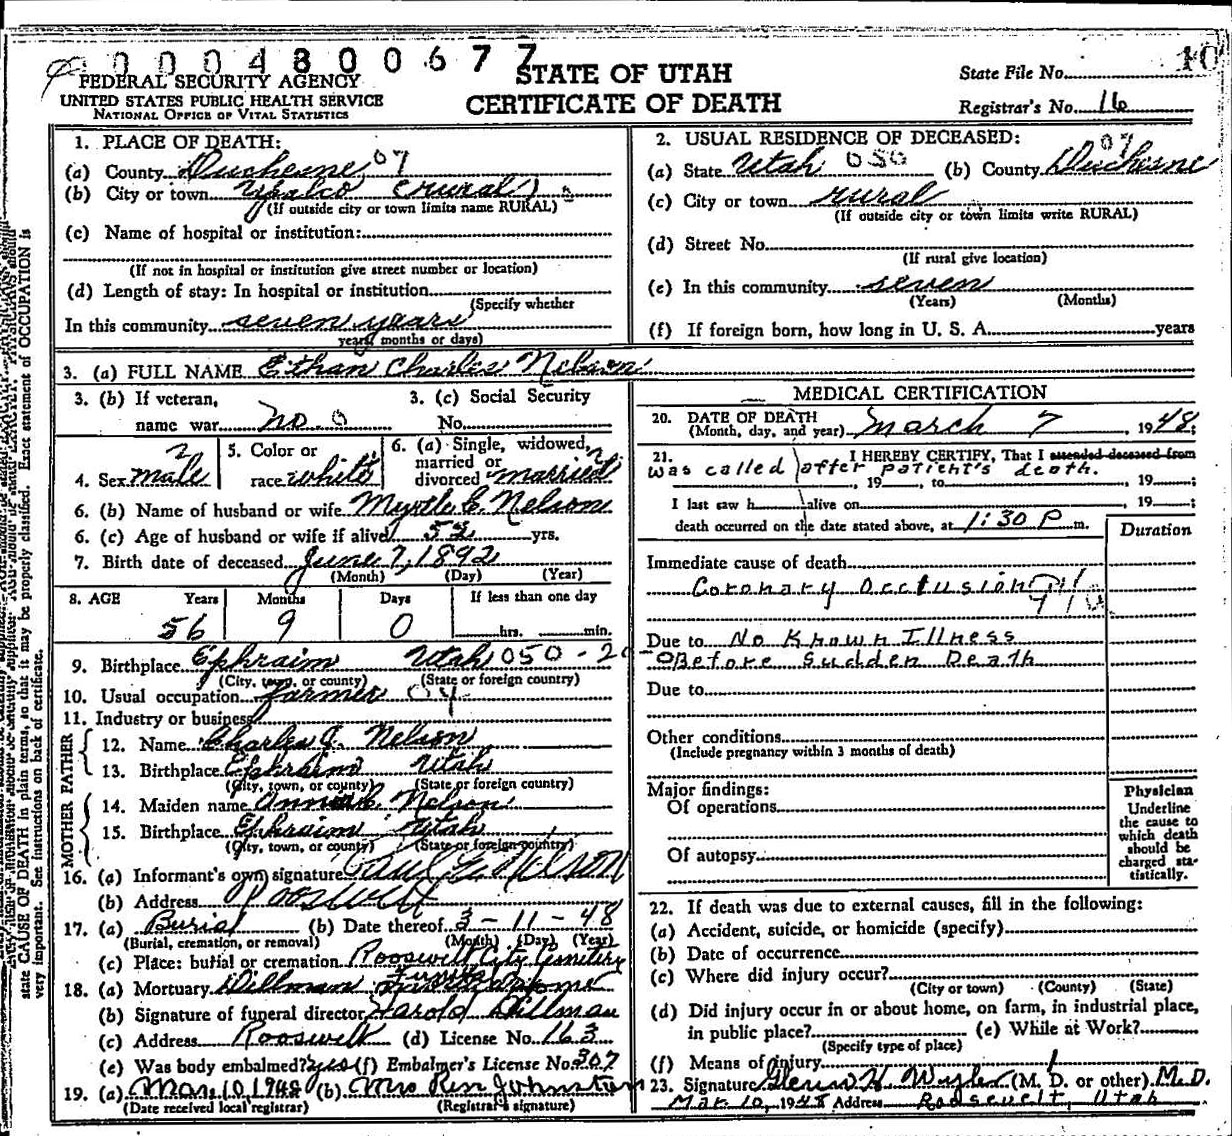 0000480067 7
10
FEDERAL SECURITY AGENCY
UNITED STATES PUBLIC HEALTH SERVICE
NATIONAL OFFICE OF VITAL STATISTICS
STATE OF UTAH
CERTIFICATE OF DEATH
State File No.
Registrar's No. 16
1. PLACE OF DEATH:
(a) County Duchesne 07
(b) City or town Yalco (rural)
(If outside city or town limits name RURAL)
(c) Name of hospital or institution:
(If not in hospital or institution give street number or location)
(d) Length of stay: In hospital or institution
(Specify whether
In this community seven years
years, months or days)
2. USUAL RESIDENCE OF DECEASED:
(a) State Utah 050 (b) County Duchesne 07
(c) City or town rural
(If outside city or town limits write RURAL)
(d) Street No.
(If rural give location)
(e) In this community seven
(Years) (Months)
(f) If foreign born, how long in U. S. A. years
3. (a) FULL NAME Ethan Charles Nelson
3. (b) If veteran, name war no. 0
3. (c) Social Security No.
4. Sex male 2
5. Color or race white
6. (a) Single, widowed, married or divorced married
6. (b) Name of husband or wife Myrtle C. Nelson
6. (c) Age of husband or wife if alive 52 yrs.
7. Birth date of deceased June 7, 1892
(Month) (Day) (Year)
8. AGE Years Months Days If less than one day
56 9 0 hrs. min.
9. Birthplace Ephraim Utah 050-20
(City, town, or county) (State or foreign country)
10. Usual occupation farmer 04
11. Industry or business
FATHER
12. Name Charles J. Nelson
13. Birthplace Ephraim Utah
(City, town, or county) (State or foreign country)
MOTHER
14. Maiden name Nelson
15. Birthplace Ephraim Utah
(City, town, or county) (State or foreign country)
16. (a) Informant's own signature Paul E. Nelson
(b) Address Roosevelt
17. (a) Burial (b) Date thereof 3-11-48
(Burial, cremation, or removal) (Month) (Day) (Year)
(c) Place: burial or cremation Roosevelt City Cemetery
18. (a) Mortuary Dillman Funeral Home
(b) Signature of funeral director Harold Dillman
(c) Address Roosevelt (d) License No. 163
(e) Was body embalmed? yes (f) Embalmer's License No. 307
19. (a) Mar. 10, 1948 (b) Mrs Ren Johnston
(Date received local registrar) (Registrar's signature)
MEDICAL CERTIFICATION
20. DATE OF DEATH
(Month, day, and year) March 7 1948;
21. I HEREBY CERTIFY, That I attended deceased from
was called after patient's death.
, 19 , to , 19 ;
I last saw h alive on , 19 ;
death occurred on the date stated above, at 1:30 P m.
Duration
Immediate cause of death
Coronary Occlusion
Due to No Known Illness
Before Sudden Death
Due to
Other conditions
(Include pregnancy within 3 months of death)
Major findings:
Of operations
Of autopsy
Physician
Underline
the cause to
which death
should be
charged sta-
tistically.
22. If death was due to external causes, fill in the following:
(a) Accident, suicide, or homicide (specify)
(b) Date of occurrence
(c) Where did injury occur?
(City or town) (County) (State)
(d) Did injury occur in or about home, on farm, in industrial place,
in public place? (e) While at Work?
(Specify type of place)
(f) Means of injury
23. Signature (M. D. or other) M.D.
Mar. 10, 1948 Address Roosevelt, Utah
state CAUSE OF DEATH in plain terms, so that it may be properly classified. Exact statement of OCCUPATION is
very important. See instructions on back of certificate.